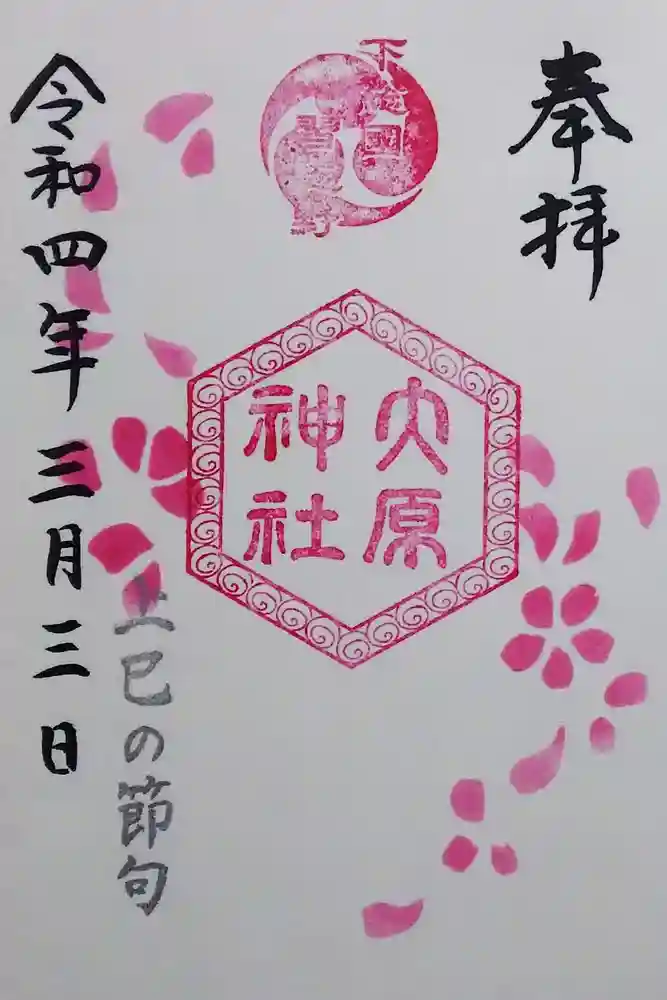 奉拝
下総國
習志野
大原
神社
上巳の節句
令和四年三月三日